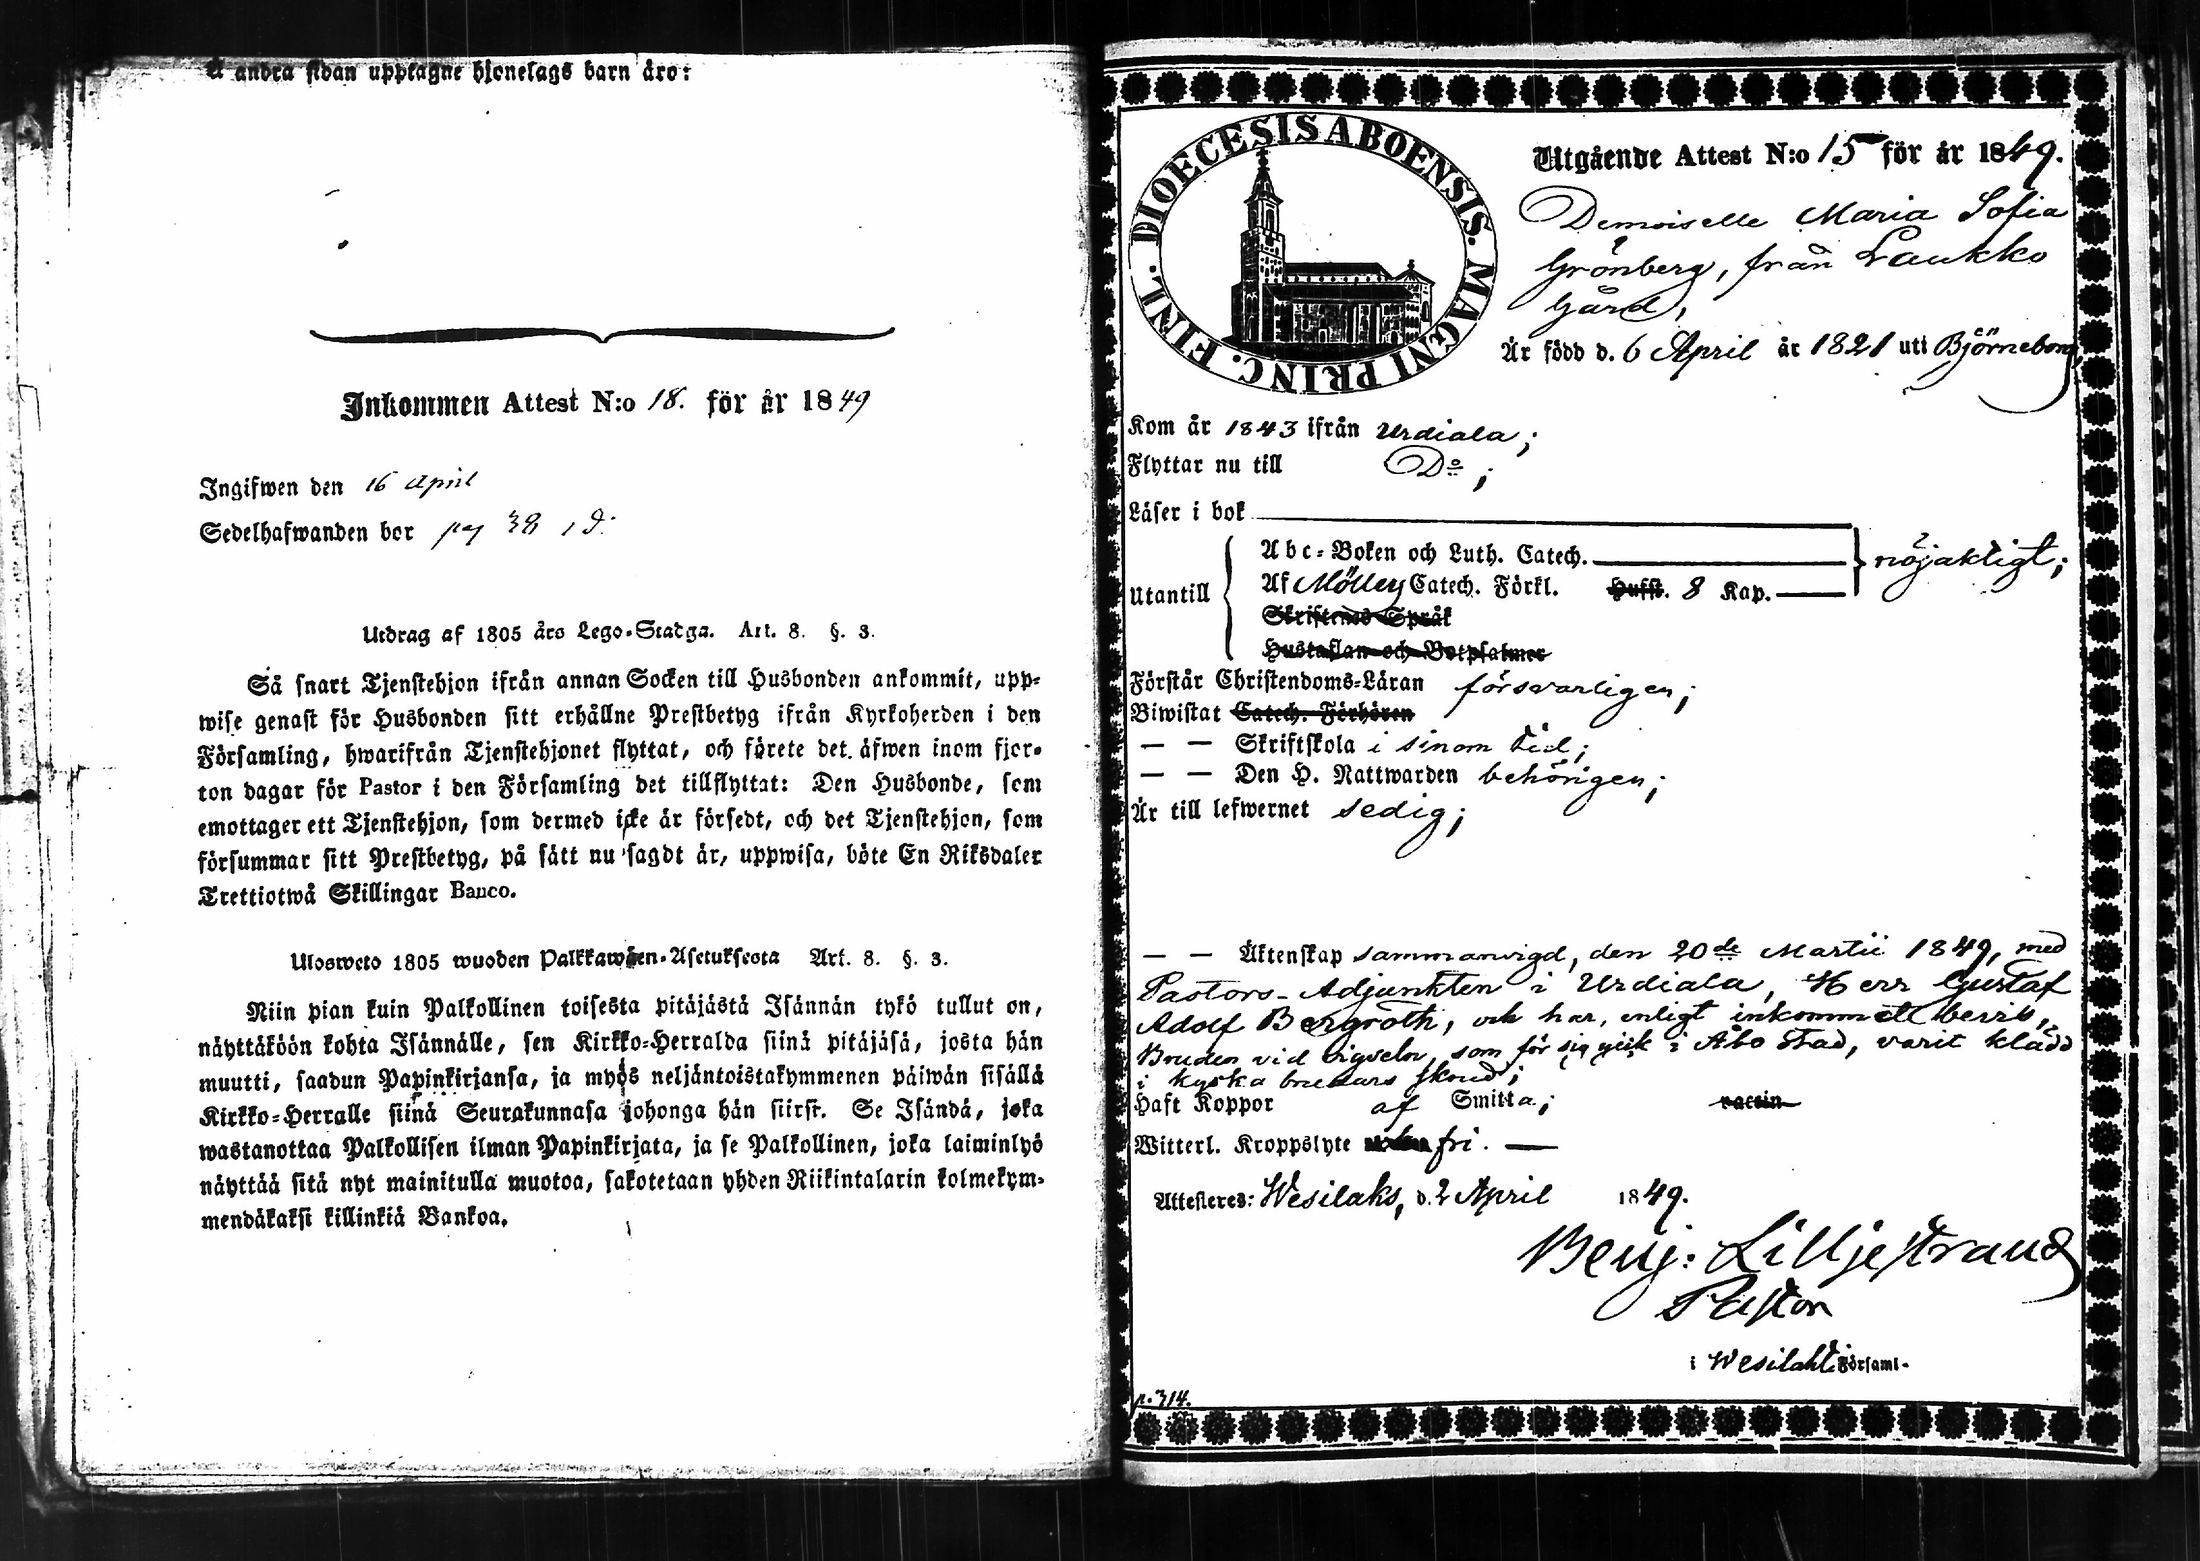 å andra sidan upptagne hjonelags barn äro:
Inkommen Attest N:o 18. för år 1849
Ingifwen den 16 April
Sedelhafwanden bor pag 38
Utdrag af 1805 års Lego-Stadga. Art. 8. §. 3.
Så snart Tjenstehjon ifrån annan Socken till Husbonden ankommit, upp-
wise genast för Husbonden sitt erhållne Prestbetyg ifrån Kyrkoherden i den
Församling, hwarifrån Tjenstehjonet flyttat, och förete det äfwen inom fjor-
ton dagar för Pastor i den Församling det tillflyttat: Den Husbonde, som
emottager ett Tjenstehjon, som dermed icke är försedt, och det Tjenstehjon, som
försummar sitt Prestbetyg, på sätt nu sagdt är, uppwisa, böte En Riksdaler
Trettiotwå Skillingar Banco.
Ulosweto 1805 wuoden Palkkawäen-Asetuksesta Art. 8. §. 3.
Niin pian kuin Palkollinen toisesta pitäjästä Isännän tykö tullut on,
näyttäköön kohta Isännälle, sen Kirkko-Herralda siinä pitäjäsä, josta hän
muutti, saadun Papinkirjansa, ja myös neljäntoistakymmenen päiwän sisällä
Kirkko-Herralle siinä Seurakunnasa johonga hän siirst. Se Isändä, joka
wastanottaa Palkollisen ilman Papinkirjata, ja se Palkollinen, joka laiminlyö
näyttää sitä nyt mainitulla muotoa, sakotetaan yhden Riikintalarin kolmekym-
mendäkaksi killinkiä Bankoa.
DIOECESIS ABOENSIS. MAGNI PRINC. FINL.
Utgående Attest N:o 15 för år 1849.
Demoiselle Maria Sofia
Grönberg, från Laukko
Gård,
Är född d. 6 April år 1821 uti Björneborg,
Kom år 1843 ifrån Urdiala;
Flyttar nu till Do;
Läser i bok
Abc-Boken och Luth. Catech.
nöjaktigt;
Utantill
Af Möllers Catech. Förkl. Husst. 8 Kap.
Skriftenes Språk
Hustaflan och Botpsalmer
Förstår Christendoms-Läran försvarligen;
Biwistat Catech. Förhören
— — Skriftskola i sinom tid;
— — Den H. Nattwarden behörigen;
Är till lefwernet sedig;
— — Äktenskap sammanvigd, den 20de Martii 1849, med
Pastors-Adjunkten i Urdiala, Herr Gustaf
Adolf Bergroth, och har, enligt inkommet bevis,
Bruden vid vigseln, som för sig gick i Åbo stad, varit klädd
i kyska brudars skrud;
Haft Koppor af Smitta; vaccin
Witterl. Kroppslyte fri. —
Attesteres: Wesilaks, d. 2 April 1849.
Benj: Lilljestrand
Pastor
i Wesilahti Församl-
p. 314.